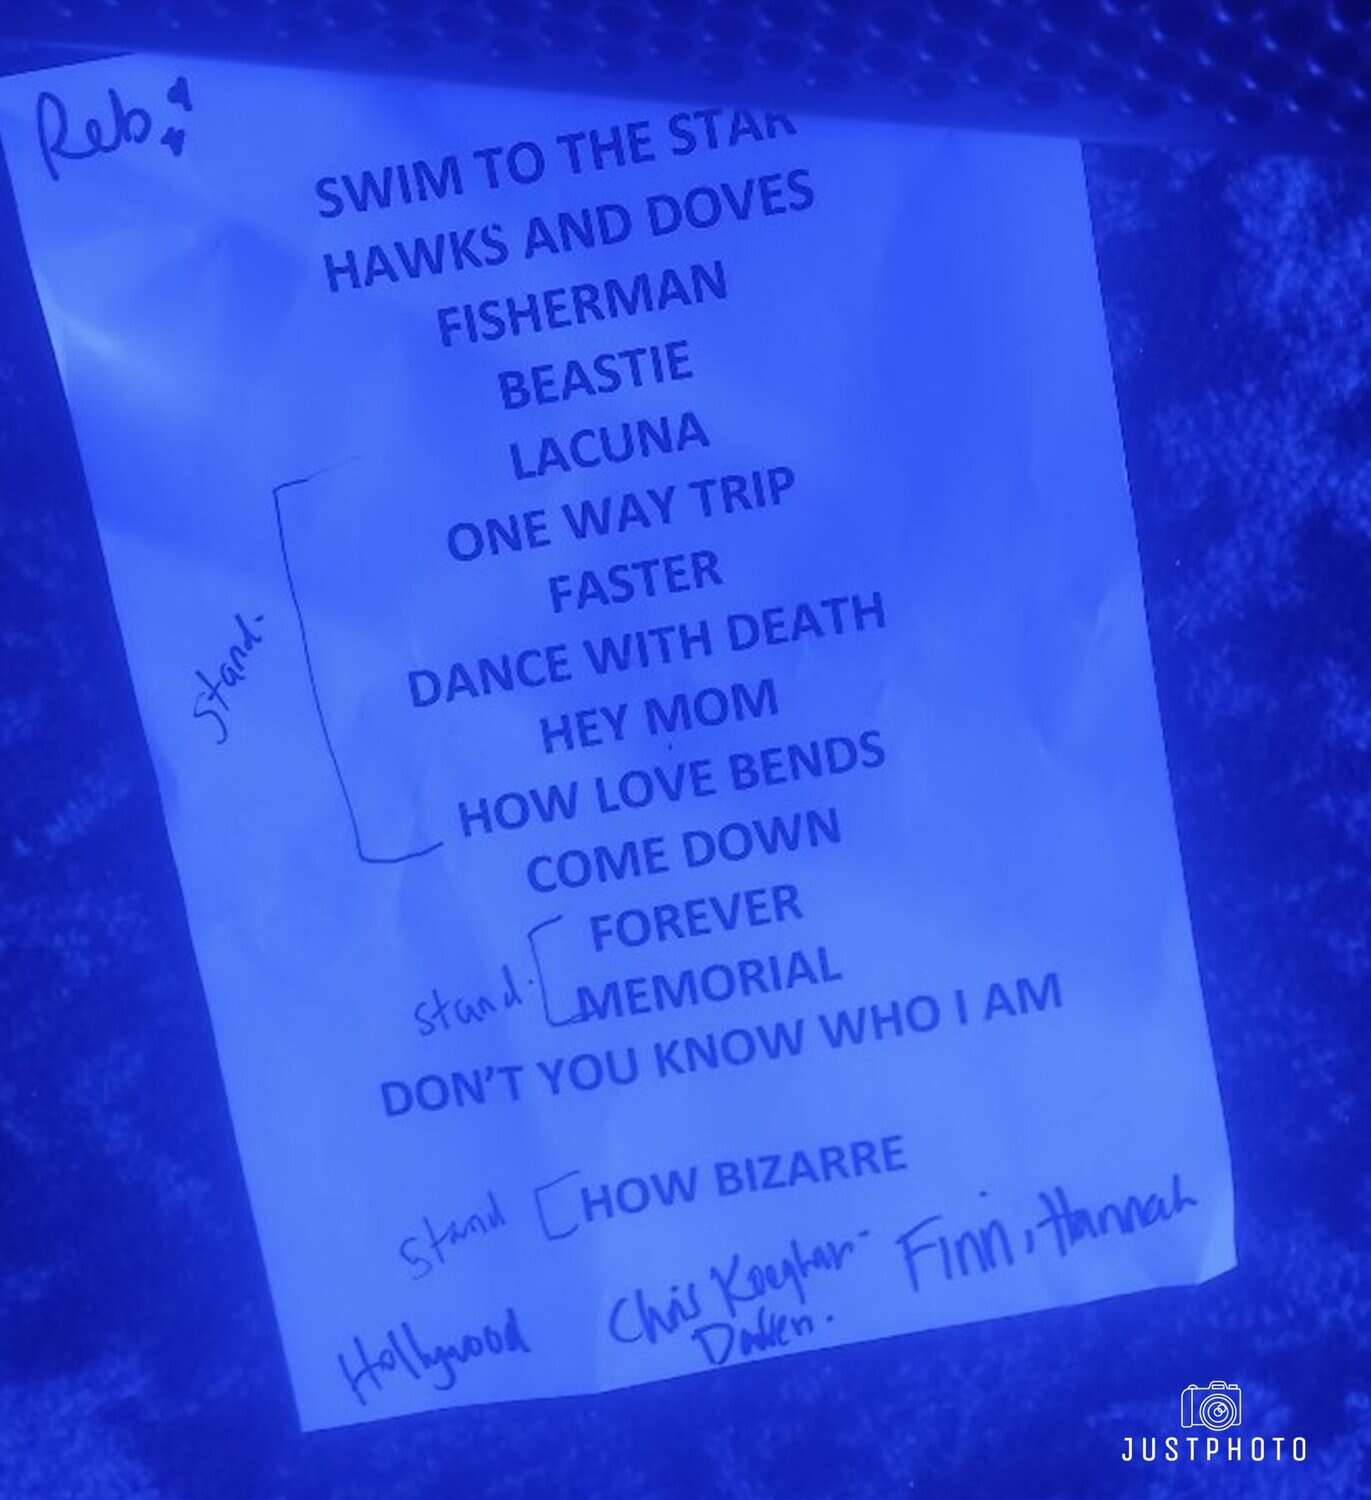 Reb
SWIM TO THE STAR
HAWKS AND DOVES
FISHERMAN
BEASTIE
LACUNA
ONE WAY TRIP
FASTER
stand.
DANCE WITH DEATH
HEY MOM
HOW LOVE BENDS
COME DOWN
FOREVER
stand.
MEMORIAL
DON'T YOU KNOW WHO I AM
stand
HOW BIZARRE
Hollywood
Chris
Finn, Hannah
JUSTPHOTO